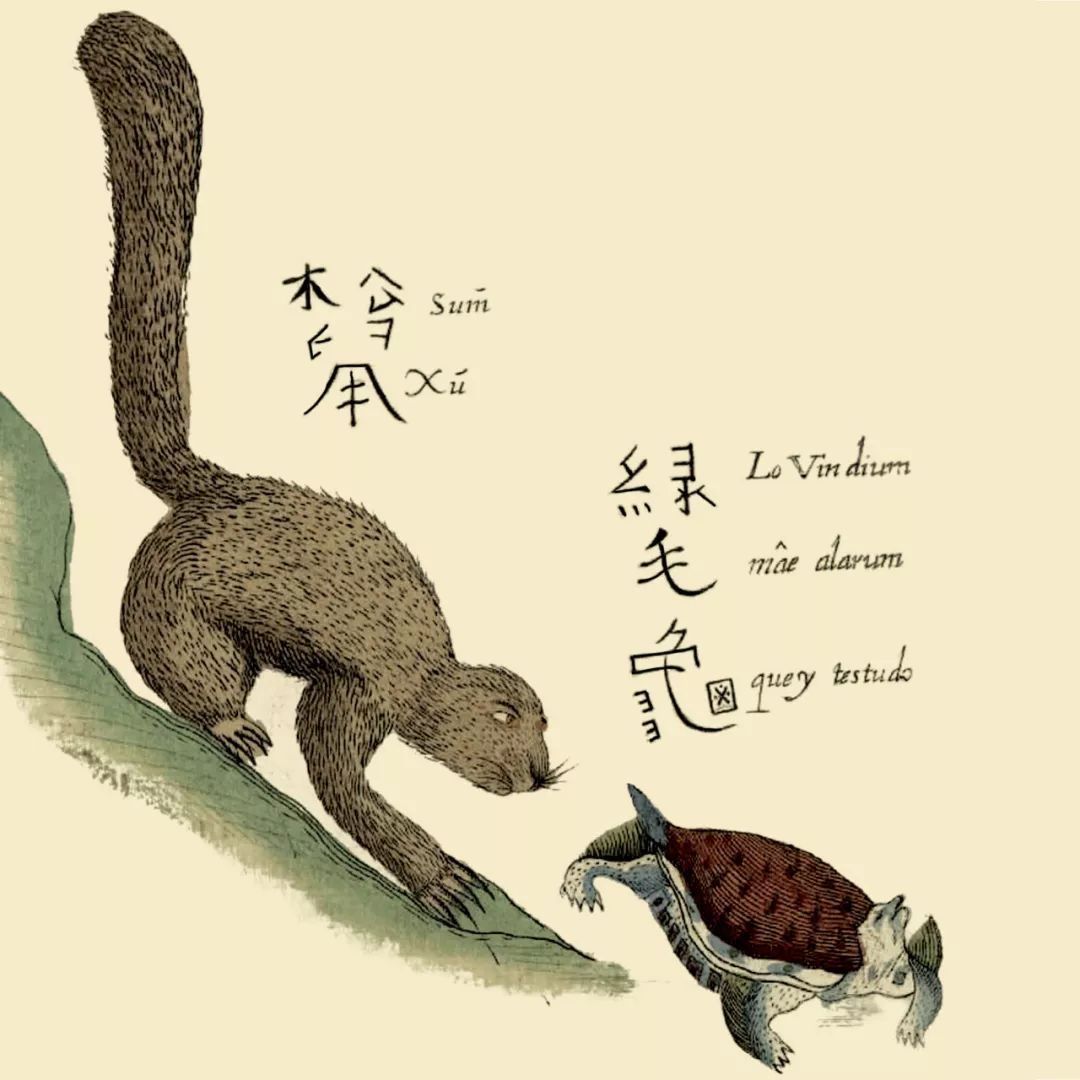 松 Sum̄
鼠 Xū
緑 Lo Vindium
毛 mâe alarum
龜 quey testudo